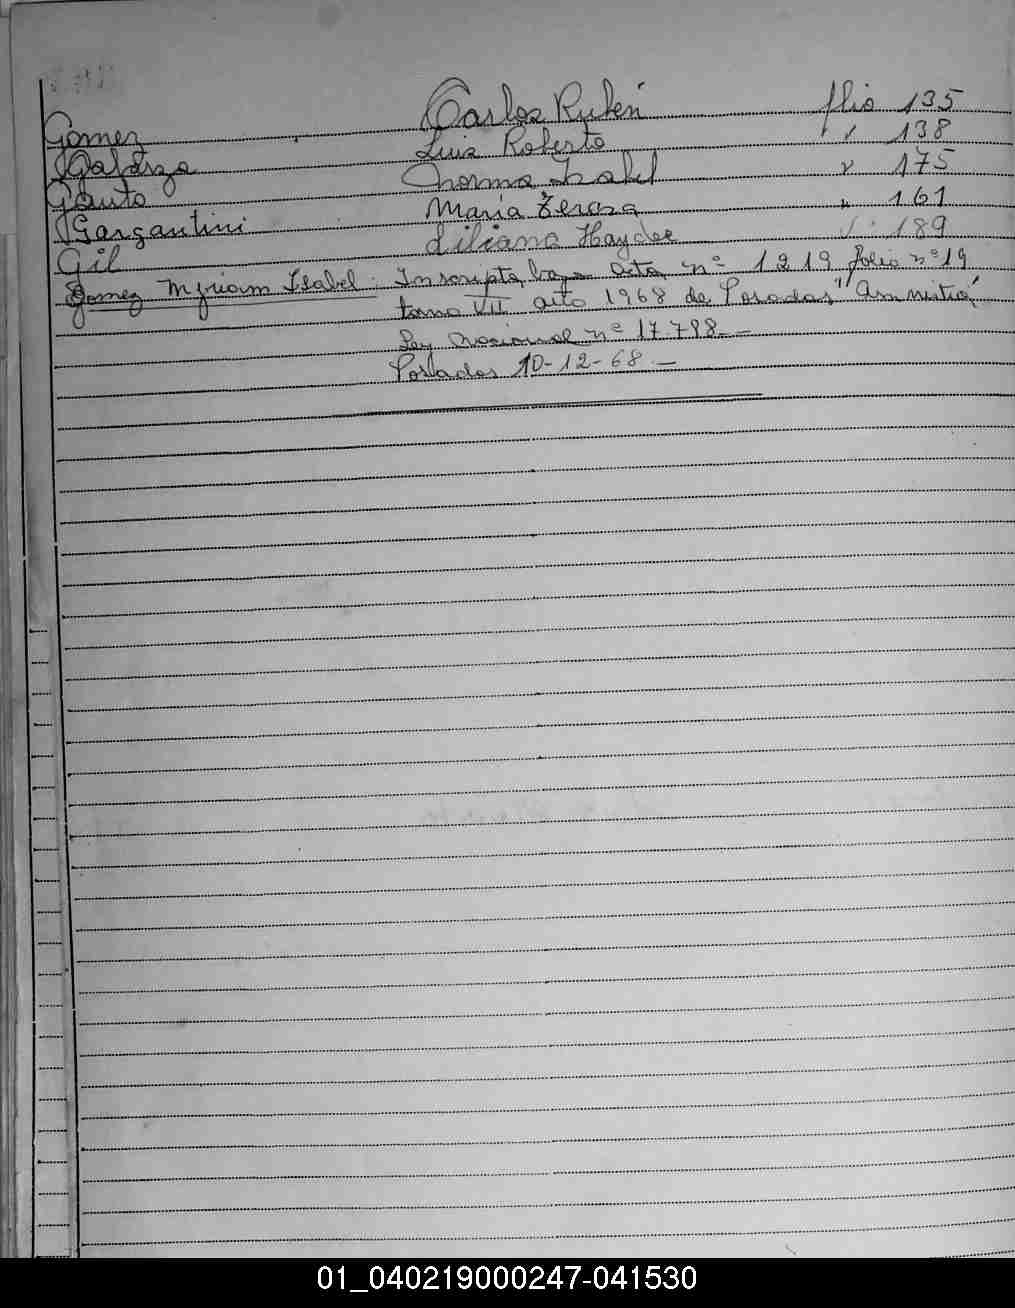 Gomez Carlos Ruben flio 135
Galarza Luis Roberto " 138
Gauto Norma Isabel " 175
Gargantini Maria Tereza " 161
Gil Liliana Haydee " 189
Gomez Myriam Isabel. Inscripta bajo acta n° 1219 folio n° 19
tomo VII año 1968 de Posadas "Amnistia"
Ley Nacional n° 17.798.-
Posadas 10-12-68.-
01_040219000247-041530